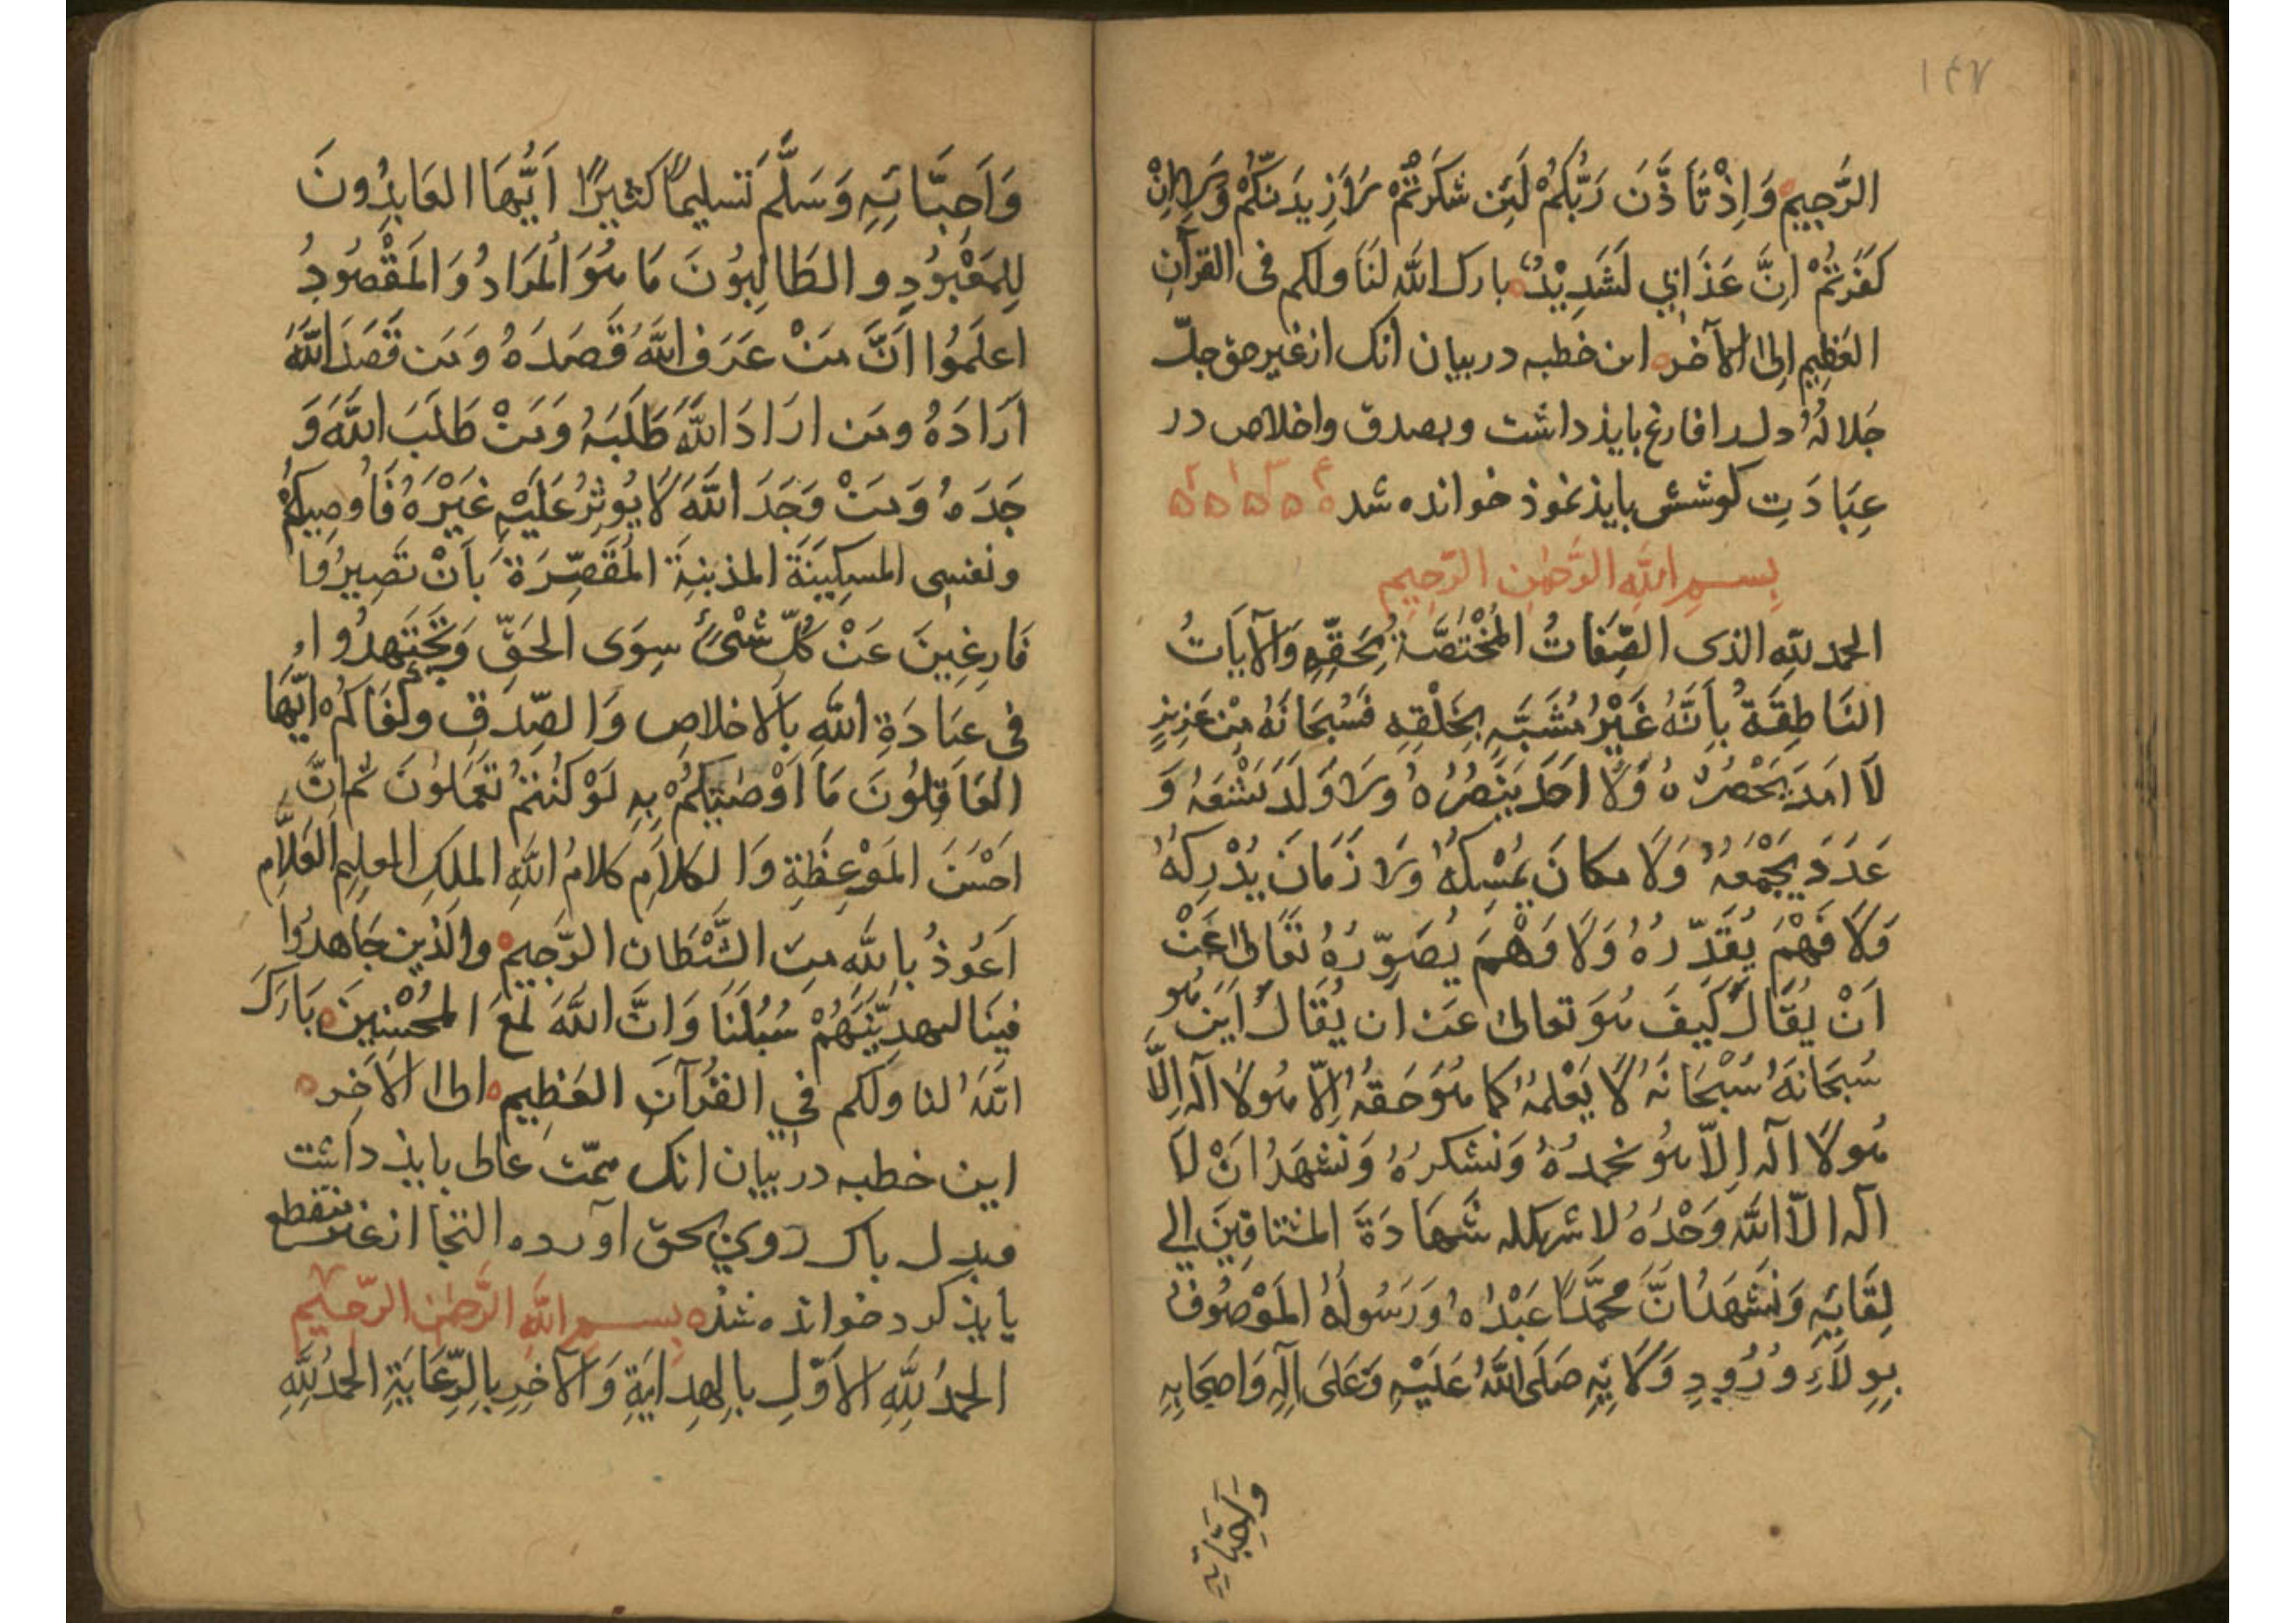 ۱۴۷
الرَّجِيمِ وَاِذْ تَأَذَّنَ رَبُّكُمْ لَئِن شَكَرْتُمْ لَاَزِيدَنَّكُمْ وَلَاِنْ
كَفَرْتُمْ اِنَّ عَذَابِي لَشَدِيْدٌ بارك الله لَنَا ولكم فى القرآنِ
العَظِيمِ اِلىٰ الآخر این خطبه در بیان آنک از غیر حق جلّ
جَلالُهُ دل را فارغ بایذ داشت و بصدق و اخلاص در
عِبَادَتِ كوشش بایذ نموذ خوانده شد
بِسمِ اللهِ الرَّحمٰنِ الرَّحِيمِ
الحمد للهِ الذى الصِّفَاتُ المُخْتَصَّةُ بِحَقِّهِ وَالآيَاتُ
النَاطِقَةُ بِاَنَّهُ غَيْرُ مُشَبَّهٍ بِخَلْقِهِ فَسُبْحَانَهُ مِنْ عَزِيزٍ
لَا اَمَدَ يَحْصُرُهُ وَلَا اَحَدَ يَنْصُرُهُ وَلَا وَلَدَ يَشْفَعُهُ وَ
عَدَدَ يَجْمَعُهُ وَلَا مكَانَ يُمْسِكُهُ وَلَا زَمَانَ يُدْرِكُهُ
وَلَا فَهْمَ يُقَدِّرُهُ وَلَا وَهْمَ يُصَوِّرُهُ تَعَالىٰ عَنْ
اَنْ يُقَالَ كَيفَ هُوَ تعالىٰ عَن اَن يُقَالَ اَيَنَ هُو
سُبحَانَهُ سُبْحَانَهُ لَا يَعْلَمُهُ كَمَا هُوَ حَقُهُ اِلّا هُو لَا الٓه اِلَّا
هُو لَا الٓه اِلّا هُو نحمدُهُ وَنَشكرُهُ وَنَشهَدُ اَنْ لَا
الٓه الّا الله وَحْدَهُ لا شريكله شَهَادَةَ المشتاقِينَ الي
لِقَايِهِ وَنَشهَدُ اَنَّ محمَّدًا عَبْدُهُ وَرَسُولُهُ المَوْصُوفُ
بِوِلَاءِ وُرُودِ وَلَايِهِ صَلَى اللهُ عَلَيْهِ وَعَلىَ آلِهِ وَاصحَابِهِ
وَاَحِبَّائِهِ
وَاَحِبَّائِهِ وَسَلَّمَ تَسليمًا كَثيرًا اَيُّهَا العَابِدُونَ
لِلمَعْبُودِ و الطَالِبُونَ مَا هُوَ المُرَادُ وَ المَقْصُودُ
اعلَمُوا اَنَّ مَنْ عَرَفَ اللهَ قَصَدَهُ وَمَن قَصَدَ اللهَ
اَرَادَهُ ومَن ارَادَ اللهَ طَلَبَهُ وَمَنْ طَلَبَ اللهَ وَ
جَدَهُ وَمَنْ وَجَدَ اللهَ لَا يُوثِرُ عَلَيْهِ غَيْرَهُ فَاُوصِيكُمْ
ونفسِى المسِكِينَةَ المذنبِةَ المُقَصِّرَةَ بَاَنْ تَصِيرُوا
فَارِغِينَ عَنْ كُلِّ شْئٍ سِوَى الحَقِّ وَتَجْتَهِدُوا
فى عبَادَةِ اللهِ بِالاخلاصِ وَالصِّدقِ وكَفَاكُم اَيّهَا
العَاقِلُونَ مَا اَوْصَيْتُكُمْ بِهِ لَوْ كُنتُمْ تَعْمَلُونَ ثُم اِنَّ
اَحْسَنَ المَوْعِظَةِ وَالكلَامِ كلَامُ اللهِ المَلِكِ العليِمِ العَلَّامِ
اَعُوذُ بِاللهِ مِنَ الشَّيْطَان الرَّجِيمِ والذين جَاهدُوا
فينَا لنهدِيَنَّهُمْ سُبُلَنَا وَاِنَّ اللهَ لَمَعَ المُحْسِنِينَ بَارَكَ
اللهُ لنا وَلكُم فِي القُرْآنِ العَظِيمِ الىٰ الآخِر
این خطبه در بیان انک همّت عالی بایذ داشت
وبدل پاک روی بحق آورده التجا از غیر منقطع
بایذ کرد خوانده شذ بِسمِ اللهِ الرَّحمٰن الرَّحِيمِ
الحمدُ لِلَّهِ الاَوَّلِ بِالهِدايَةِ وَالآخِرِ بِالرِّعَايَةِ الحمدُ لِلَّهِ